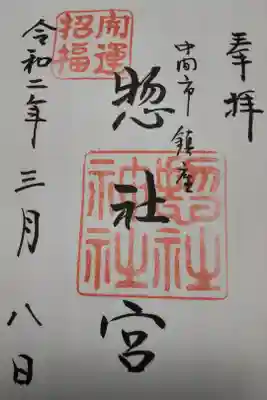 奉拝
中間市鎮座
惣社宮
惣社神社
開運招福
令和二年三月八日